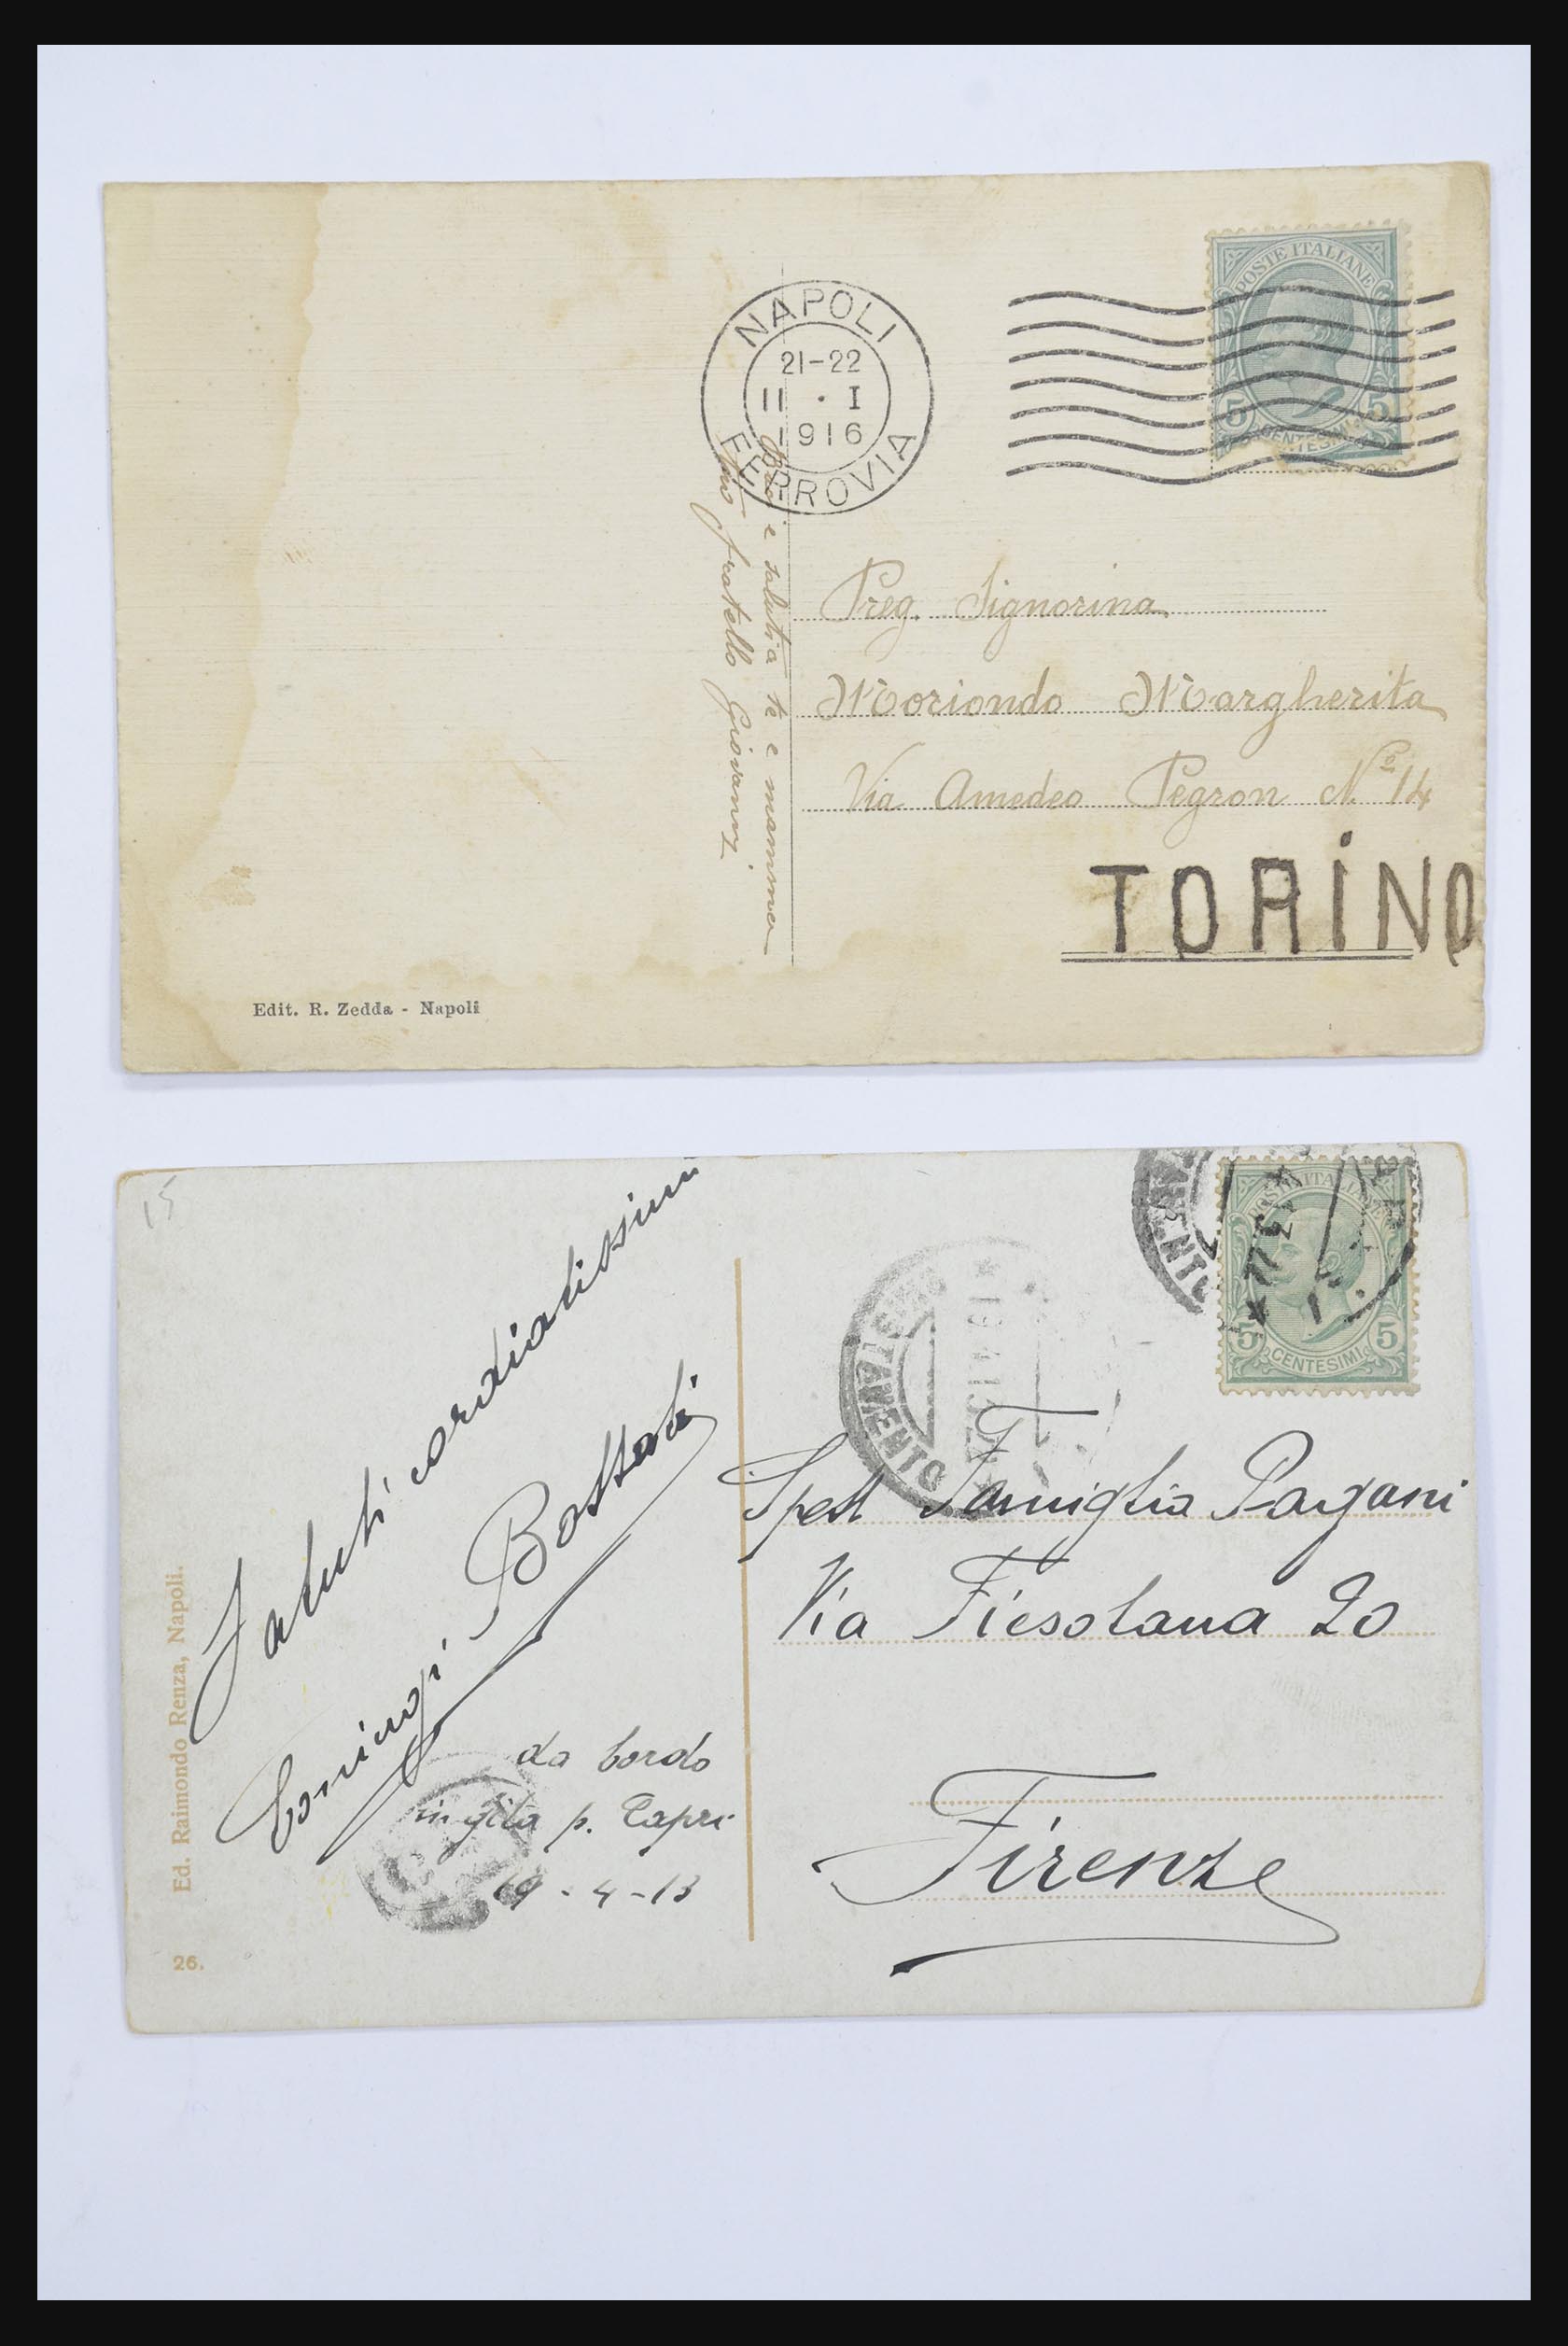 POSTE ITALIANE
5 CENTESIMI 5
NAPOLI
21-22
11 . I
1916
FERROVIA
e saluta te e mamma
tuo fratello Giovanni
Preg. Signorina
Moriondo Margherita
Via Amedeo Pegron N.º 14
TORINO
Edit. R. Zedda - Napoli
15
POSTE ITALIANE
5 CENTESIMI 5
Saluti cordialissimi
Bottali
da bordo
in gita p. Capri
19-4-13
Spett Famiglia Pagani
Via Fiesolana 20
Firenze
Ed. Raimondo Renza, Napoli.
26.